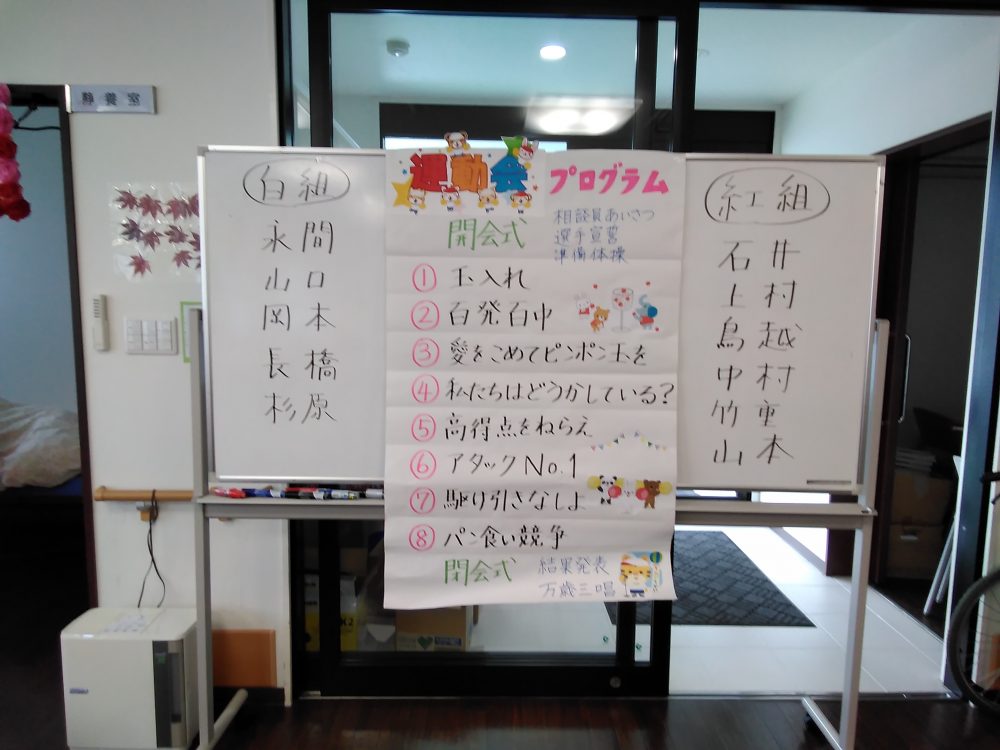 静養室
白組
永間
山口
岡本
長橋
杉原
運動会
プログラム
開会式
相談員あいさつ
選手宣誓
準備体操
① 玉入れ
② 百発百中
③ 愛をこめてピンポン玉を
④ 私たちはどうかしている?
⑤ 高得点をねらえ
⑥ アタックNo.1
⑦ 駆り引きなしよ
⑧ パン食い競争
閉会式
結果発表
万歳三唱
紅組
石井
上村
鳥越
中村
竹重
山本